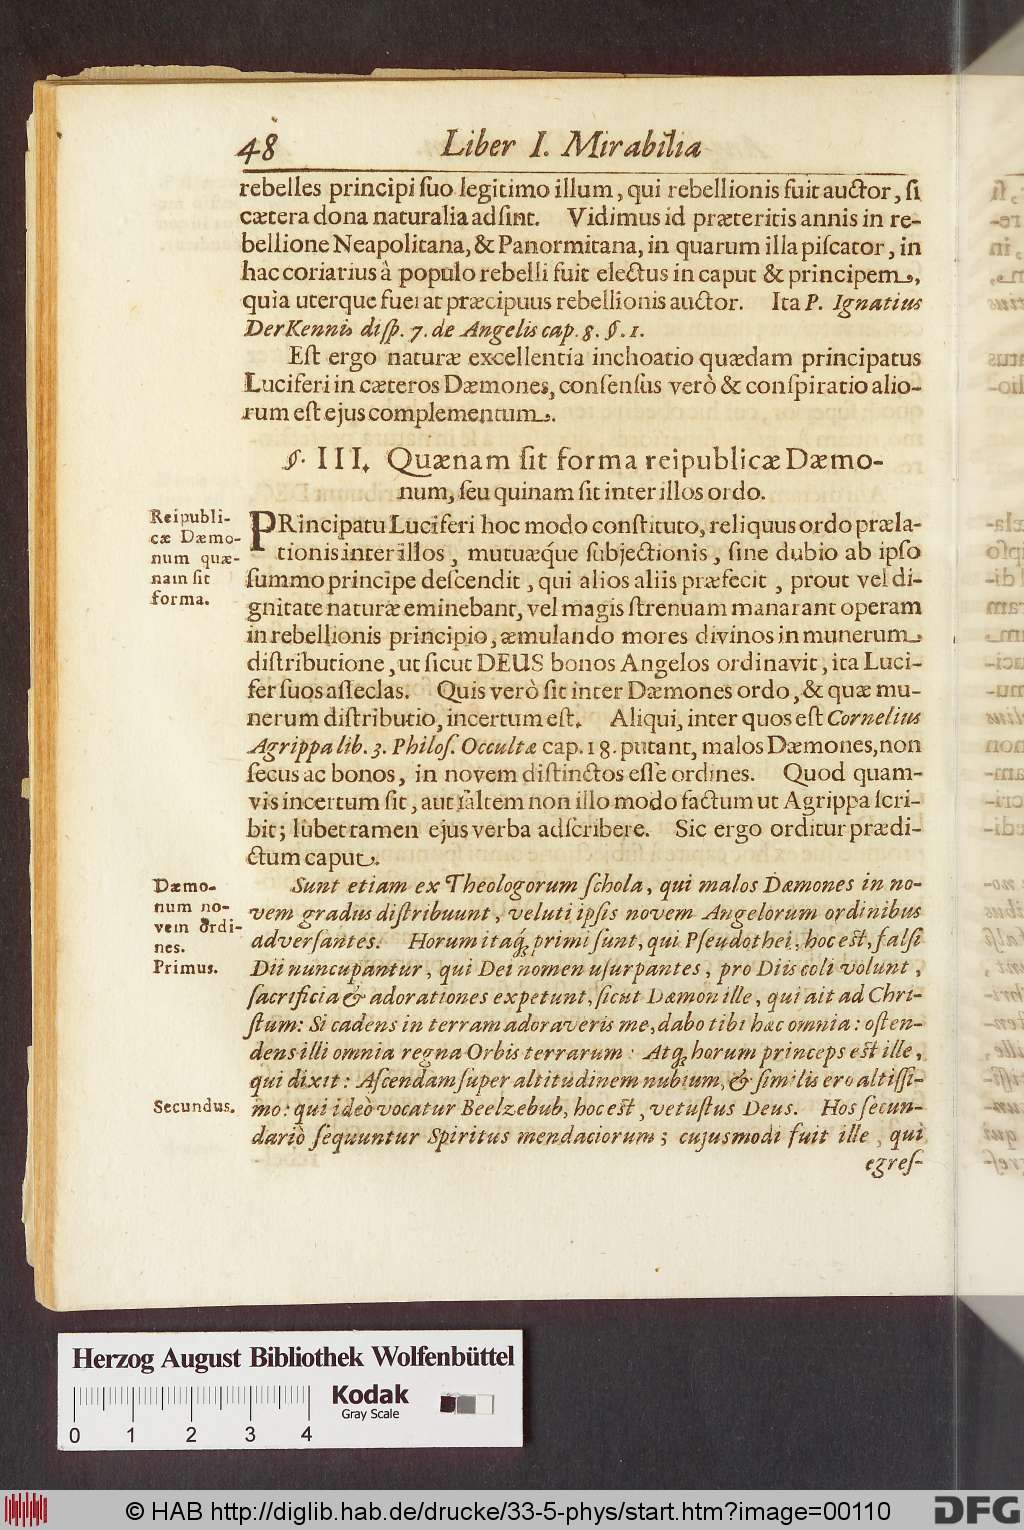 48 Liber I. Mirabilia
rebelles principi ſuo legitimo illum, qui rebellionis fuit auctor, ſi
cætera dona naturalia adſint. Vidimus id præteritis annis in re-
bellione Neapolitana, & Panormitana, in quarum illa piſcator, in
hac coriarius à populo rebelli fuit electus in caput & principem,
quia uterque fuerat præcipuus rebellionis auctor. Ita P. Ignatius
DerKennis diſp. 7. de Angelis cap. 8. §. 1.
Eſt ergo naturæ excellentia inchoatio quædam principatus
Luciferi in cæteros Dæmones, conſenſus verò & conſpiratio alio-
rum eſt ejus complementum.
§. III. Quænam ſit forma reipublicæ Dæmo-
num, ſeu quinam ſit inter illos ordo.
Reipubli-
cæ Dæmo-
num quæ-
nam ſit
forma.
PRincipatu Luciferi hoc modo conſtituto, reliquus ordo præla-
tionis inter illos, mutuæq́ue ſubjectionis, ſine dubio ab ipſo
ſummo principe deſcendit, qui alios aliis præfecit, prout vel di-
gnitate naturæ eminebant, vel magis ſtrenuam manarant operam
in rebellionis principio, æmulando mores divinos in munerum
diſtributione, ut ſicut DEUS bonos Angelos ordinavit, ita Luci-
fer ſuos aſſeclas. Quis verò ſit inter Dæmones ordo, & quæ mu-
nerum diſtributio, incertum eſt. Aliqui, inter quos eſt Cornelius
Agrippa lib. 3. Philoſ. Occultæ cap. 18. putant, malos Dæmones, non
ſecus ac bonos, in novem diſtinctos eſſe ordines. Quod quam-
vis incertum ſit, aut ſaltem non illo modo factum ut Agrippa ſcri-
bit; lubet tamen ejus verba adſcribere. Sic ergo orditur prædi-
ctum caput.
Dæmo-
num no-
vem ordi-
nes.
Primus.
Sunt etiam ex Theologorum ſchola, qui malos Dæmones in no-
vem gradus diſtribuunt, veluti ipſis novem Angelorum ordinibus
adverſantes. Horum itaq́; primi ſunt, qui Pſeudothei, hoc eſt, falſi
Dii nuncupantur, qui Dei nomen uſurpantes, pro Diis coli volunt,
ſacrificia & adorationes expetunt, ſicut Dæmon ille, qui ait ad Chri-
ſtum: Si cadens in terram adoraveris me, dabo tibi hæc omnia: oſten-
dens illi omnia regna Orbis terrarum: Atq́; horum princeps eſt ille,
qui dixit: Aſcendam ſuper altitudinem nubium, & ſimilis ero altiſſi-
Secundus.
mo: qui ideò vocatur Beelzebub, hoc eſt, vetuſtus Deus. Hos ſecun-
dariò ſequuntur Spiritus mendaciorum; cujusmodi fuit ille, qui
egreſ-
Herzog August Bibliothek Wolfenbüttel
Kodak
Gray Scale
0 1 2 3 4
© HAB http://diglib.hab.de/drucke/33-5-phys/start.htm?image=00110
DFG